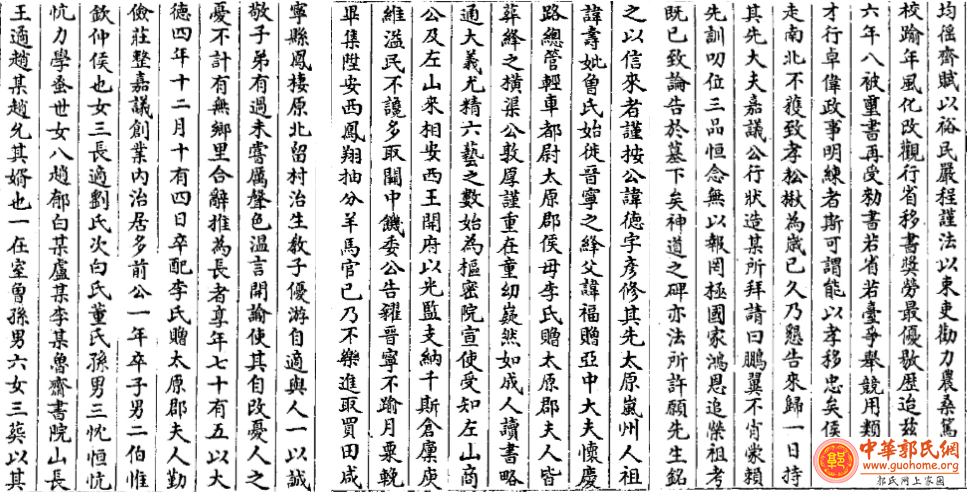 均徭齋賦以裕民嚴程謹法以束吏勸力農桑篤
校踰年風化改觀行省移書獎勞最優敭歷迨茲
六年八被璽書再受勑書若省若臺爭舉競用類
才行卓偉政事明練者斯可謂能以孝移忠矣侯
走南北不獲致孝松楸為歲已久乃懇告來歸一日持
其先大夫嘉議公行狀造某所拜請曰鵬翼不肖蒙賴
先訓叨位三品恒念無以報罔極國家鴻恩追榮祖考
既已致論告於墓下矣神道之碑亦法所許願先生銘
之以信來者謹按公諱德字彥修其先太原嵐州人祖
諱壽妣魯氏始徙晉寧之絳父諱福贈亞中大夫懷慶
路總管輕車都尉太原郡侯母李氏贈太原郡夫人皆
葬絳之橫渠公敦厚謹重在童幼嶷然如成人讀書略
通大義尤精六藝之數始為樞密院宣使受知左山商
公及左山來相安西王開府以光監支納千斯倉廩庾
維溢民不譊多取關中饑委公告糴晉寧不踰月粟輓
畢集陞安西鳳翔抽分羊馬官已乃不樂進取買田咸
寧縣鳳棲原北留村治生教子優游自適與人一以誠
敬子弟有過未嘗厲聲色溫言開諭使其自改憂人之
憂不計有無鄉里合辭推為長者享年七十有五以大
德四年十二月十有四日卒配李氏贈太原郡夫人勤
儉莊整嘉議創業內治居多前公一年卒子男二伯惟
欽仲侯也女三長適劉氏次白氏董氏孫男三忱恒忼
忼力學蚤世女八趙郁白某盧某李某魯齋書院山長
王適趙某趙允其婿也一在室曾孫男六女三葬以其
中華郭氏網
www.guohome.org
郭氏网上家园